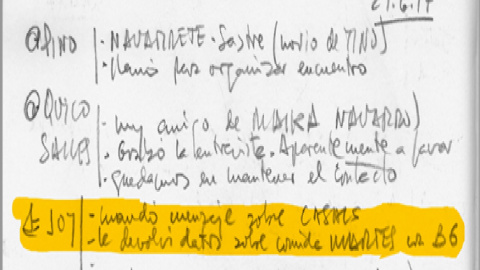 @PINO | · NAVARRETE · Sastre (novio de TINO)
· llamó para organizar encuentro
@QUICO SALLES | · muy amigo de MAIKA NAVARRO)
· Grabó la entrevista. Aparentemente a favor
· quedamos en mantener el contacto
J07 | · mandó mensaje sobre CASALS
· le devolví datos sobre comida MARTES en B6